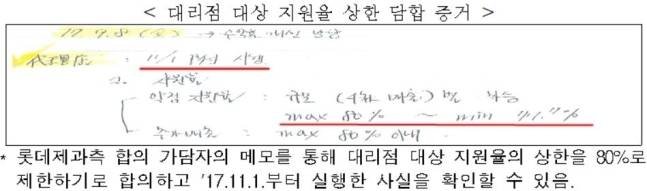 < 대리점 대상 지원율 상한 담합 증거 >
17. 9. 8 (金) →
代理店 : 11/1 부터 시행
2. 지원율
약정 지원율 : 규모 (4천 매출) 별 차등
max 80% ~ min
추가 매출 : max 80% 이내.
* 롯데제과측 합의 가담자의 메모를 통해 대리점 대상 지원율의 상한을 80%로
제한하기로 합의하고 '17.11.1.부터 실행한 사실을 확인할 수 있음.